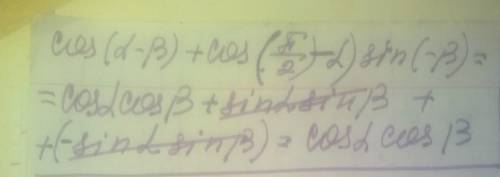 cos(α-β)+cos(π/2)-α)sin(-β)=
=cosαcosβ+sinαsinβ+
+(-sinαsinβ)=cosαcosβ